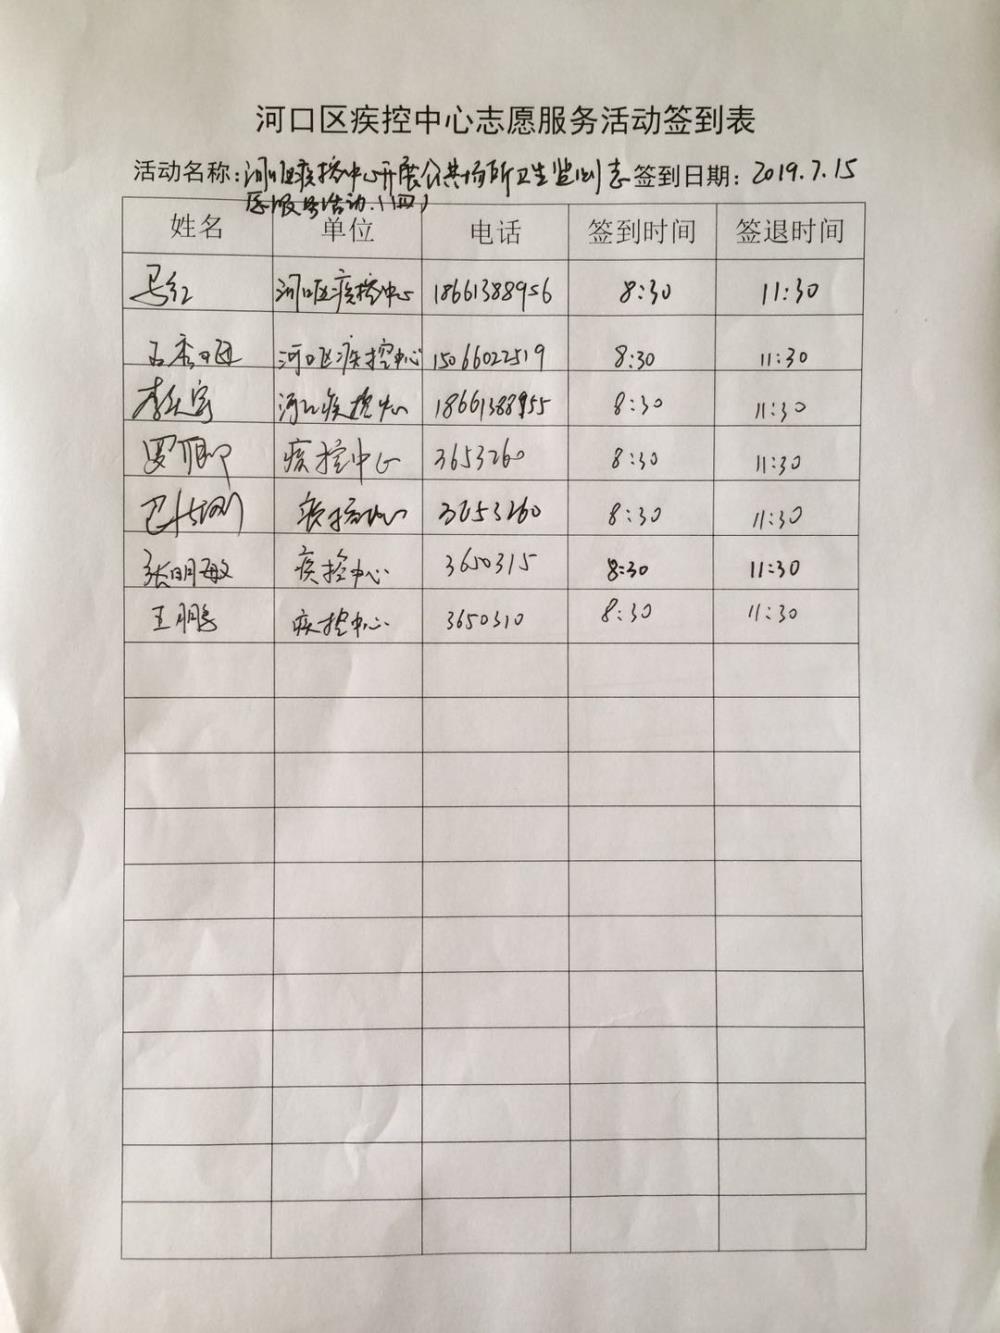 河口区疾控中心志愿服务活动签到表
活动名称：河口区疾控中心开展公共场所卫生监测志 签到日期：2019.7.15
愿服务活动.(四)
姓名 单位 电话 签到时间 签退时间
马红 河口区疾控中心 18661388956 8:30 11:30
河口区疾控中心 15066022519 8:30 11:30
河口疾控中心 18661388955 8:30 11:30
疾控中心 3653260 8:30 11:30
疾控中心 3653260 8:30 11:30
张明敏 疾控中心 3650315 8:30 11:30
王鹏 疾控中心 3650310 8:30 11:30